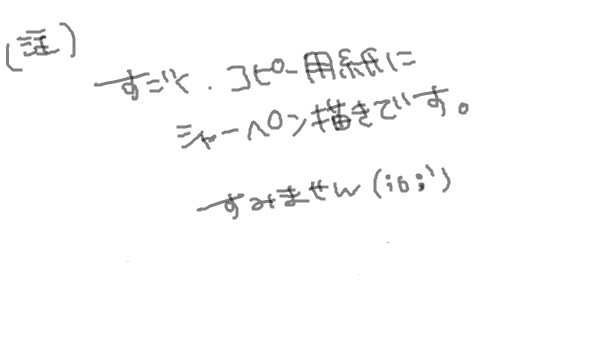 (注)
すごく.コピー用紙に
シャーペン描きでいす。
すみません(;o;')